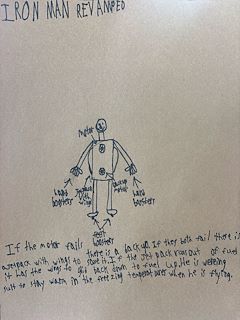 IRON MAN REVAMPED
motor
backup
motor
hand
boosters
jetpack
with
wings
hand
boosters
feet
boosters
If the motor fails there is a backup. If they both fail there is
a jetpack with wings to save it. If the jet pack runs out of fuel
it has the wings to get back down to fuel up. He is wearing
suit to stay warm in the freezing temperatures when he is flying.